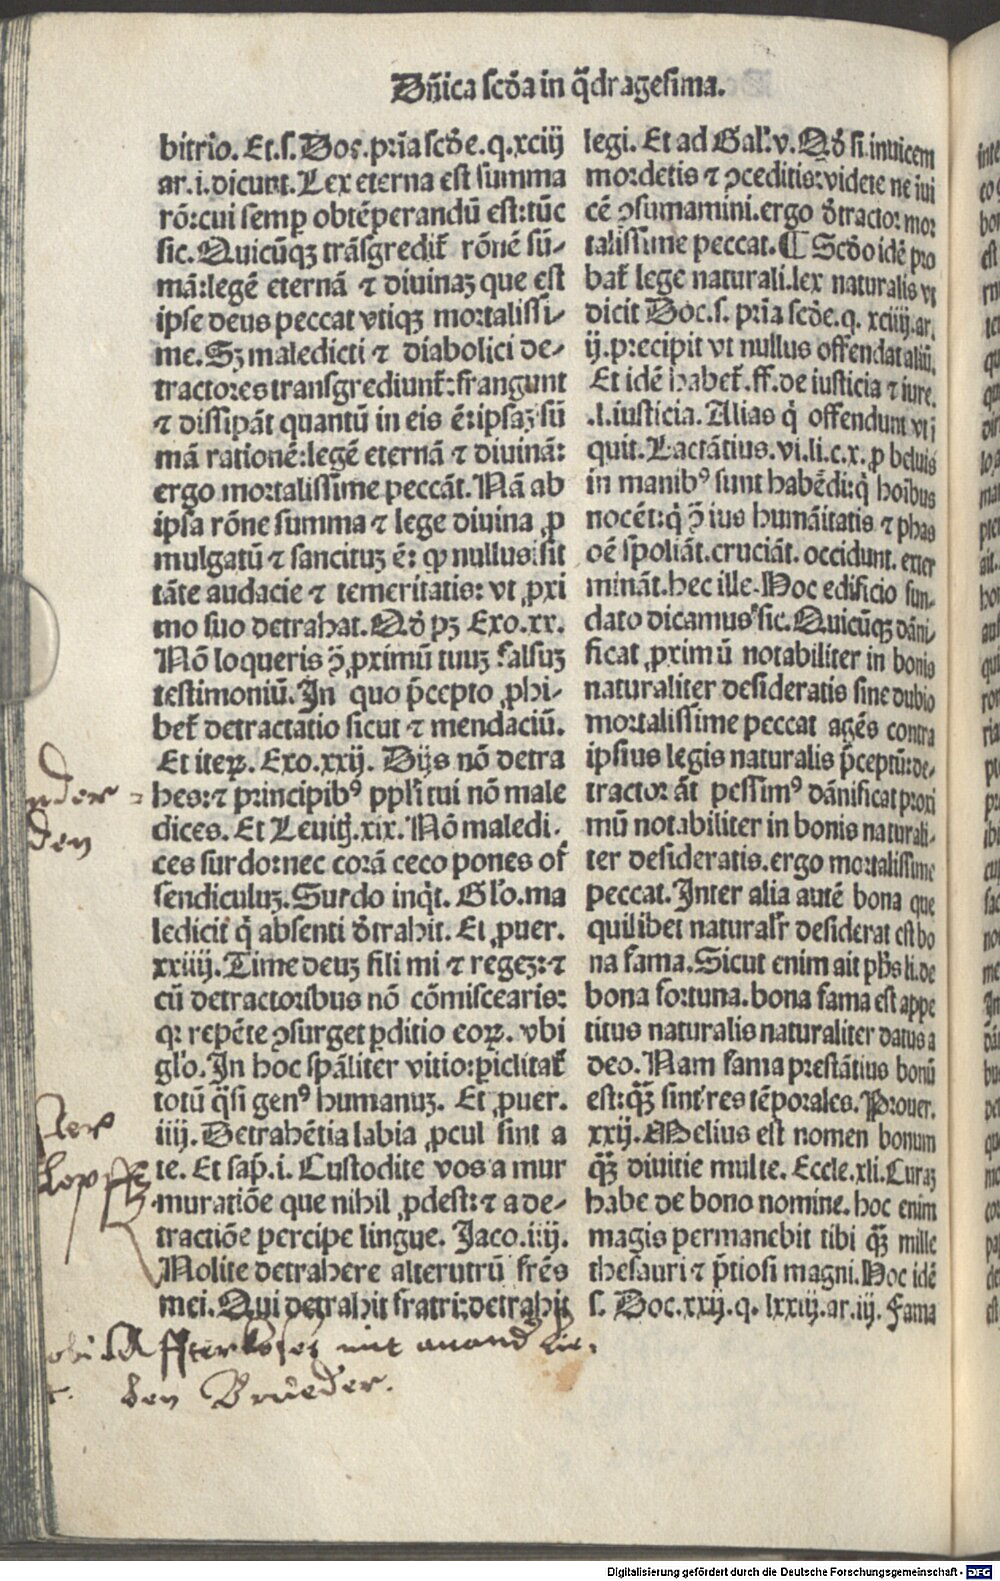 Dñica scďa in q̃dragesima.
bitrio. Et .s. Doc. pria scďe. q. xciij
ar. i. dicunt. Lex eterna est summa
rõ: cui semp obtẽperandũ est: tũc
sic. Quicũqꝫ trãsgredit̃ rõnẽ sũ-
mã: legẽ eternã ⁊ diuinaꝫ que est
ipse deus peccat vtiqꝫ mortalissi-
me. Sꝫ maledicti ⁊ diabolici de-
tractores transgrediunt̃: frangunt
⁊ dissipãt quantũ in eis ẽ: ipsaꝫ sũ
mã rationẽ: legẽ eternã ⁊ diuinã:
ergo mortalissime peccãt. Nã ab
ipsa rõne summa ⁊ lege diuina ꝓ
mulgatũ ⁊ sancituꝫ ẽ: ꝙ nullus sit
tãte audacie ⁊ temeritatis: vt ꝓxi
mo suo detrahat. Qď pꝫ Exo. xx.
Nõ loqueris ꝯ̃ ꝓximũ tuuꝫ falsuꝫ
testimoniũ. In quo p̃cepto ꝓhi-
bet̃ detractatio sicut ⁊ mendaciũ.
Et iteꝝ. Exo. xxij. Dijs nõ detra
hes: ⁊ principibꝰ ppľi tui nõ male
dices. Et Leuit̃. xix. Nõ maledi-
ces surdo: nec corã ceco pones of
fendiculuꝫ. Surdo inq̃t. Glo. ma
ledicit q̇ absenti ďtrahit. Et ꝓuer.
xxiiij. Time deuꝫ fili mi ⁊ regeꝫ: ⁊
cũ detractoribus nõ cõmiscearis:
qꝛ repẽte ꝯsurget ꝑditio eoꝝ. vbi
glo. In hoc spãliter vitio: ꝑiclitat̃
totũ q̃si genꝰ humanuꝫ. Et ꝓuer.
iiij. Detrahẽtia labia ꝓcul sint a
te. Et sap̃. i. Custodite vos a mur
muratiõe que nihil ꝓdest: ⁊ a de-
tractiõe percipe lingue. Jaco. iiij.
Nolite detrahere alterutrũ frẽs
mei. Qui detrahit fratri: detrahit
legi. Et ad Gal̃. v. Qď si inuicem
mordetis ⁊ ꝯceditis: videte ne iui
cẽ ꝯsumamini. ergo ďtractor mor
talissime peccat. ¶ Scďo idẽ pro
bat̃ lege naturali. lex naturalis vt
dicit Doc. s. pria scďe. q. xciiij. ar.
ij. precipit vt nullus offendat aliũ.
Et idẽ habet̃. ff. de iusticia ⁊ iure.
.l. iusticia. Alias q̇ offendunt vt i
quit. Lactãtius. vi. li. c. x. ꝓ beluis
in manibꝰ sunt habẽdi: q̇ hoibus
nocẽt: q̇ ꝯ̃ ius humãitatis ⁊ phas
oẽ spoliãt. cruciãt. occidunt. exter
minãt. hec ille. Hoc edificio fun-
dato dicamus sic. Quicũqꝫ dãni-
ficat ꝓximũ notabiliter in bonis
naturaliter desideratis sine dubio
mortalissime peccat agẽs contra
ipsius legis naturalis p̃ceptũ: de-
tractor aũt pessimꝰ dãnificat proxi
mũ notabiliter in bonis naturali-
ter desideratis. ergo mortalissime
peccat. Inter alia autẽ bona que
quilibet naturalr̃ desiderat est bo
na fama. Sicut enim ait pħs li. de
bona fortuna. bona fama est appe
titus naturalis naturaliter datus a
deo. Nam fama prestãtius bonũ
est: qꝫ̃ sint res tẽporales. Prouer.
xxij. Melius est nomen bonum
qꝫ̃ diuitie multe. Eccle. xli. Curaꝫ
habe de bono nomine. hoc enim
magis permanebit tibi qꝫ̃ mille
thesauri ⁊ p̃tiosi magni. Hoc idẽ
s. Doc. xxij. q. lxxiij. ar. iij. Fama
den
Affterkoset mit anand lie-
ben Brueder.
Digitalisierung gefördert durch die Deutsche Forschungsgemeinschaft - DFG